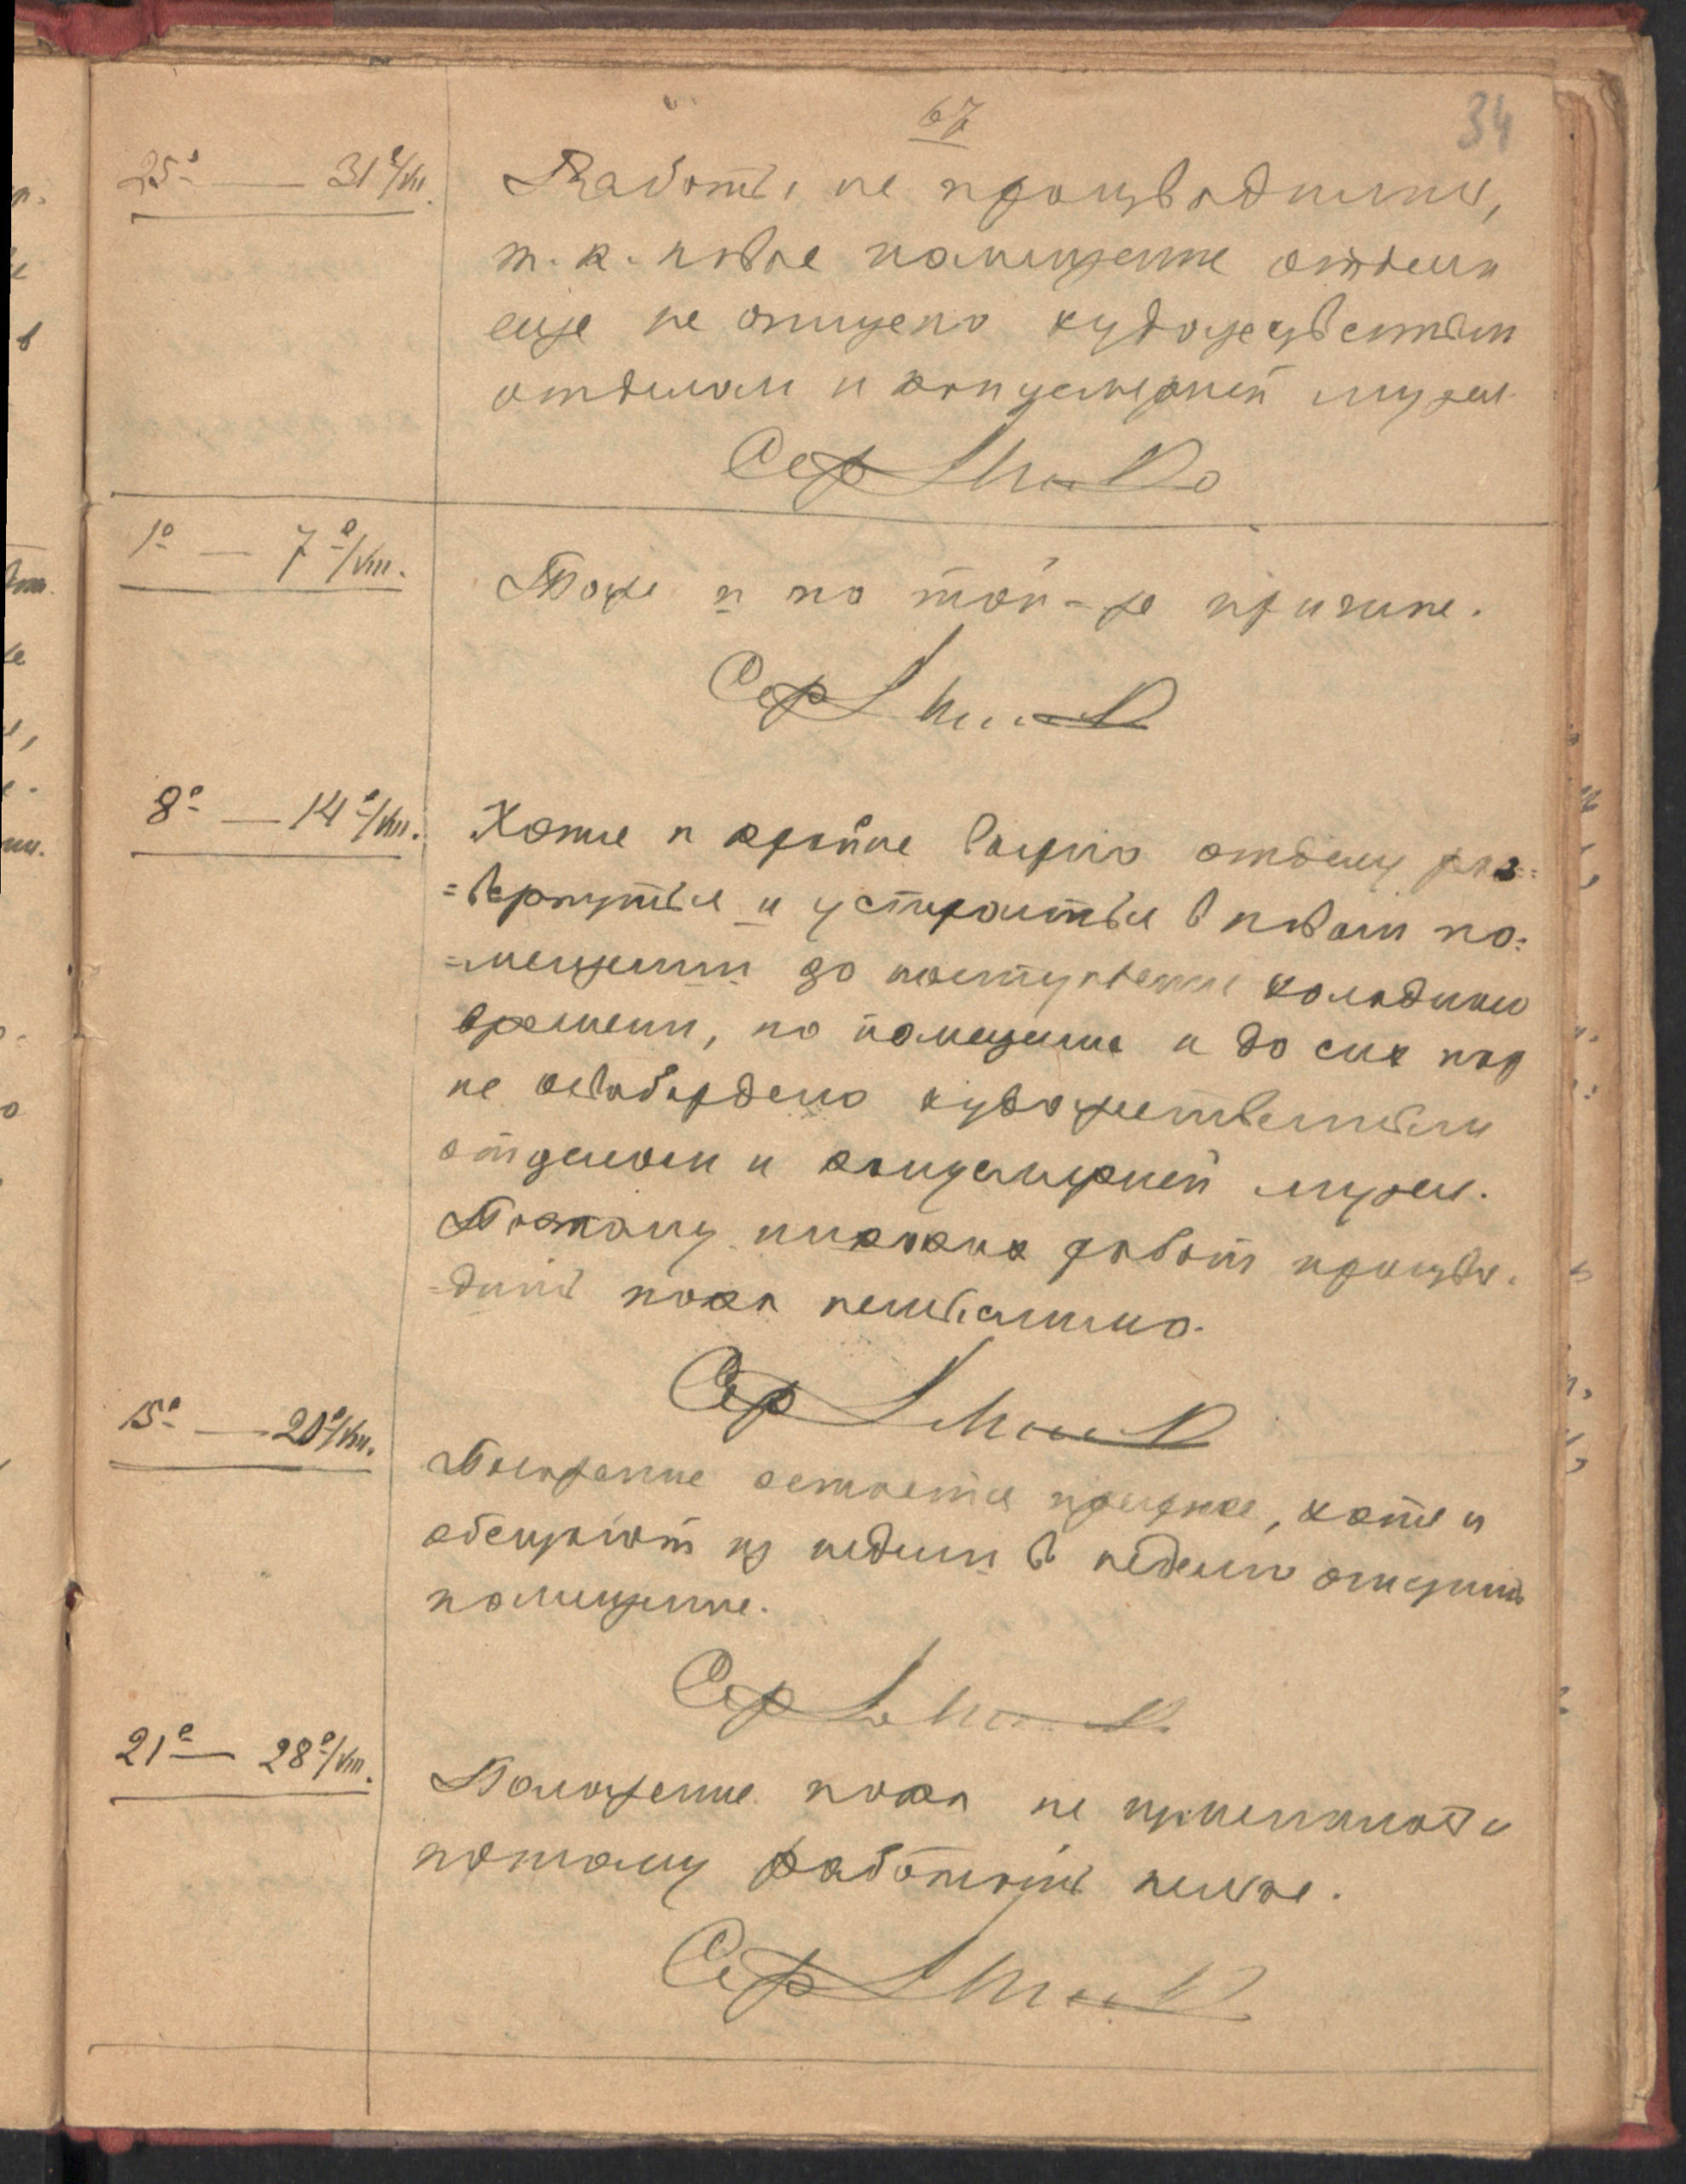 67
34
25º — 31º/VII.
Работы не производились,
т. к. новое помещение отдела
еще не очищено художественным
отделом и канцелярией музея.
1º — 7º/VIII.
Тоже и по той-же причине.
8º — 14º/VIII.
Хотя и крайне важно отделу раз=
=вернуться и устроиться в новом по=
=мещении до наступления холодного
времени, но помещение и до сих пор
не освобождено художественным
отделом и канцелярией музея.
Поэтому никаких работ произво-
=дить пока немыслимо.
15º — 20º/VIII.
Положение остается прежнее, хотя и
обещают из недели в неделю очистить
помещение.
21º — 28º/VIII.
Положение пока не применилось и
потому работать нельзя.